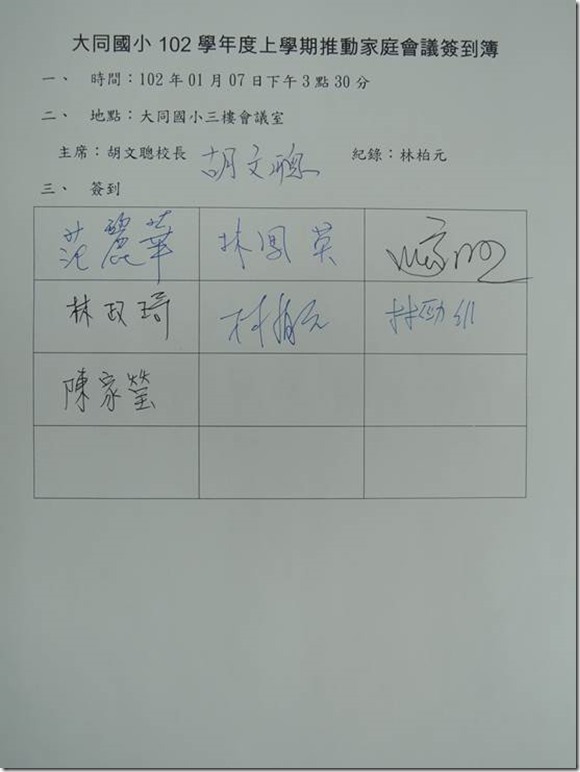 大同國小 102 學年度上學期推動家庭會議簽到簿
一、 時間：102 年 01 月 07 日下午 3 點 30 分
二、 地點：大同國小三樓會議室
主席：胡文聰校長 胡文聰 紀錄：林柏元
三、 簽到
范麗華 林鳳英
林政琦 林柏元 林勁
陳家瑩